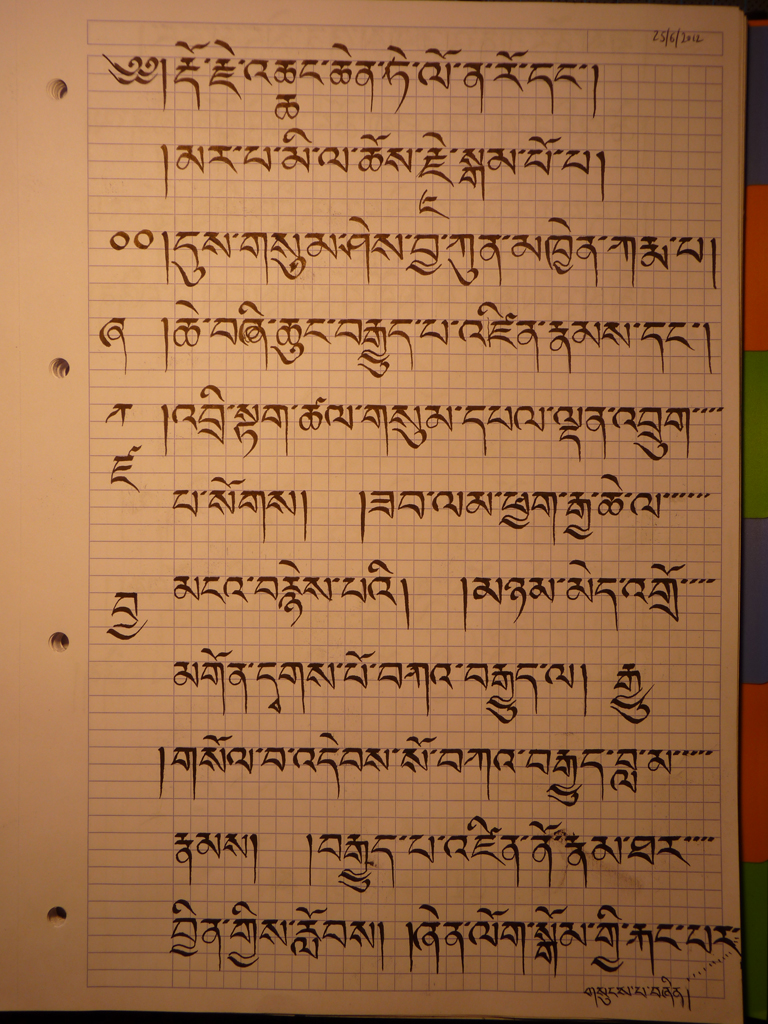 25/6/2012
༄༅། རྡོ་རྗེ་འཆང་ཆེན་ཏེ་ལོ་ན་རོ་དང་།
ཆ
།མར་པ་མི་ལ་ཆོས་རྗེ་སྒམ་པོ་པ།
༠༠ །དུས་གསུམ་ཤེས་བྱ་ཀུན་མཁྱེན་ཀརྨ་པ།
ཞ །ཆེ་བཞི་ཆུང་བརྒྱད་པ་འཛིན་རྣམས་དང་།
ཀ །འབྲི་སྟག་ཚལ་གསུམ་དཔལ་ལྡན་འབྲུག་
པ་སོགས། །ཟབ་ལམ་ཕྱག་རྒྱ་ཆེ་ལ་
མངའ་བརྙེས་པའི། །མཉམ་མེད་འགྲོ་
མགོན་དྭགས་པོ་བཀའ་བརྒྱུད་ལ། རྒྱུ
།གསོལ་བ་འདེབས་སོ་བཀའ་བརྒྱུད་བླ་མ་
རྣམས། །བརྒྱུད་པ་འཛིན་ནོ་རྣམ་ཐར་
བྱིན་གྱིས་རློབས། །ཞེན་ལོག་སྒོམ་གྱི་རྐང་པར་
གསུངས་པ་བཞིན།